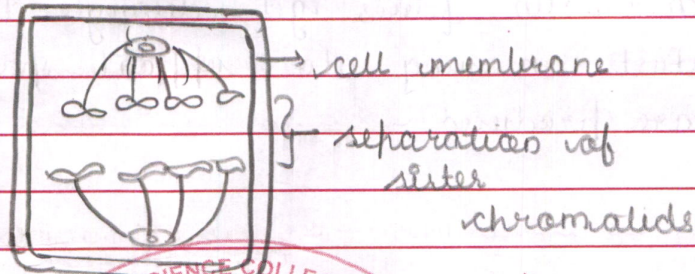 cell membrane
separation of
sister
chromatids
SCIENCE COLLE